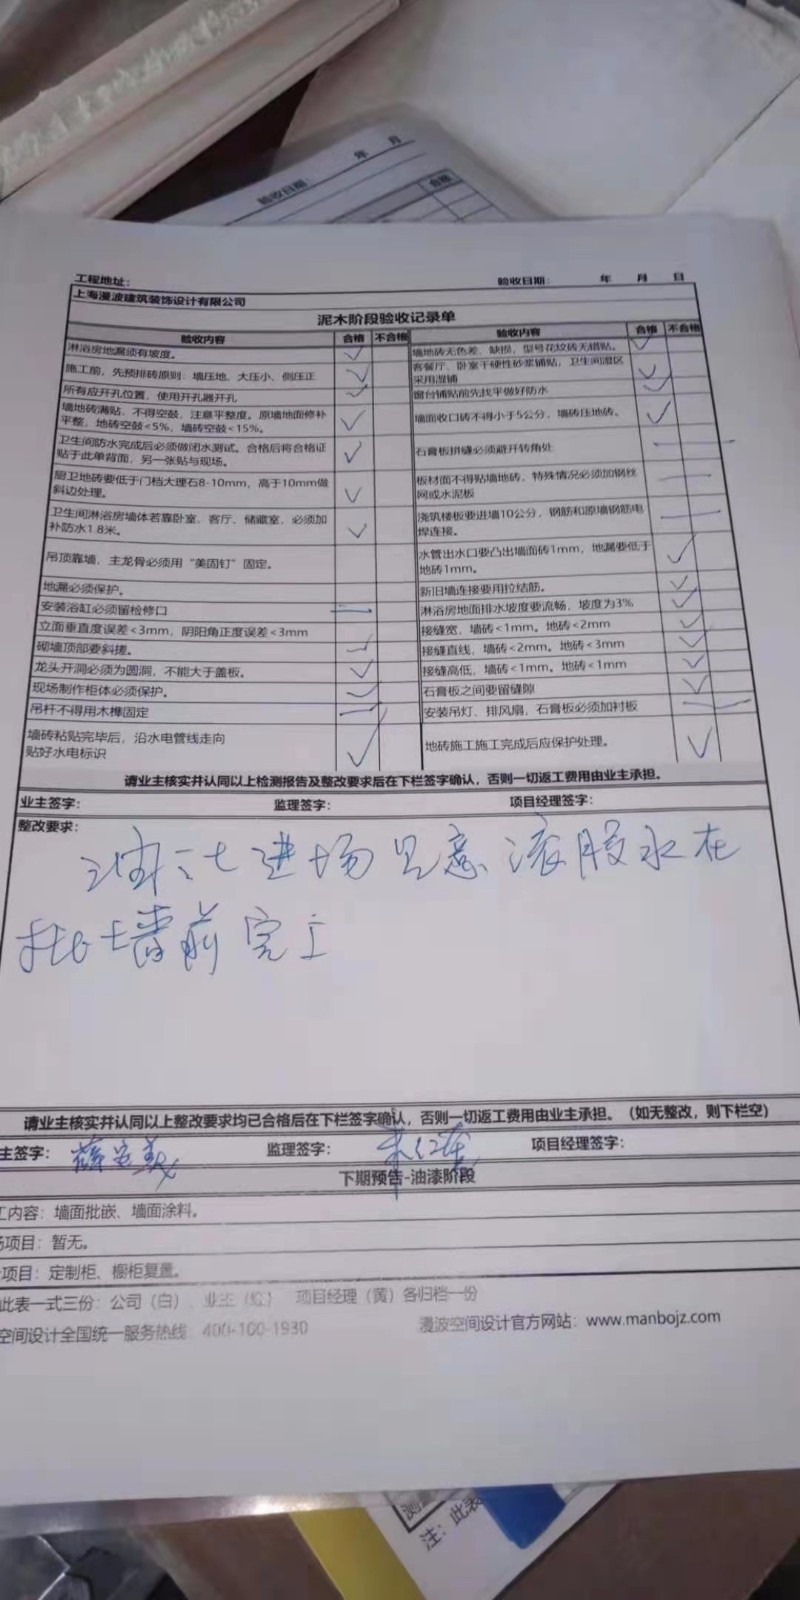 年 月
验收日期:
合格
工程地址:
验收日期: 年 月 日
上海漫波建筑装饰设计有限公司
泥木阶段验收记录单
验收内容 合格 不合格 验收内容 合格 不合格
淋浴房地漏须有坡度。
墙地砖无色差、缺损，型号花纹砖无错贴。
施工前，先预排砖原则：墙压地、大压小、侧压正
客餐厅、卧室干硬性砂浆铺贴，卫生间湿区
采用湿铺
所有应开孔位置，使用开孔器开孔
窗台铺贴前先找平做好防水
墙地砖满贴，不得空鼓，注意平整度。原墙地面修补
平整，地砖空鼓<5%，墙砖空鼓<15%。
墙面收口砖不得小于5公分，墙砖压地砖。
卫生间防水完成后必须做闭水测试。合格后将合格证
贴于此单背面，另一张贴与现场。
石膏板拼缝必须避开转角处
厨卫地砖要低于门档大理石8-10mm，高于10mm做
斜边处理。
板材面不得贴墙地砖，特殊情况必须加钢丝
网或水泥板
卫生间淋浴房墙体若靠卧室、客厅、储藏室，必须加
补防水1.8米。
浇筑楼板要进墙10公分，钢筋和原墙钢筋电
焊连接。
吊顶靠墙，主龙骨必须用“美固钉”固定。
水管出水口要凸出墙面砖1mm，地漏要低于
地砖1mm。
地漏必须保护。
新旧墙连接要用拉结筋。
安装浴缸必须留检修口
淋浴房地面排水坡度要流畅，坡度为3%
立面垂直度误差<3mm，阴阳角正度误差<3mm
接缝宽，墙砖<1mm。地砖<2mm
砌墙顶部要斜搓。
接缝直线，墙砖<2mm。地砖<3mm
龙头开洞必须为圆洞，不能大于盖板。
接缝高低，墙砖<1mm。地砖<1mm
现场制作柜体必须保护。
石膏板之间要留缝隙
吊杆不得用木榫固定
安装吊灯、排风扇，石膏板必须加衬板
墙砖粘贴完毕后，沿水电管线走向
贴好水电标识
地砖施工施工完成后应保护处理。
请业主核实并认同以上检测报告及整改要求后在下栏签字确认，否则一切返工费用由业主承担。
业主签字: 监理签字: 项目经理签字:
整改要求:
油工进场 滚胶水在
批墙前完工
请业主核实并认同以上整改要求均已合格后在下栏签字确认，否则一切返工费用由业主承担。（如无整改，则下栏空）
主签字: 监理签字: 项目经理签字:
下期预告-油漆阶段
工内容：墙面批嵌、墙面涂料。
场项目：暂无。
项目：定制柜、橱柜复量。
此表一式三份：公司（白）、业主（红） 项目经理（黄）各归档一份
空间设计全国统一服务热线 400-100-1930
漫波空间设计官方网站：www.manbojz.com
注：此表